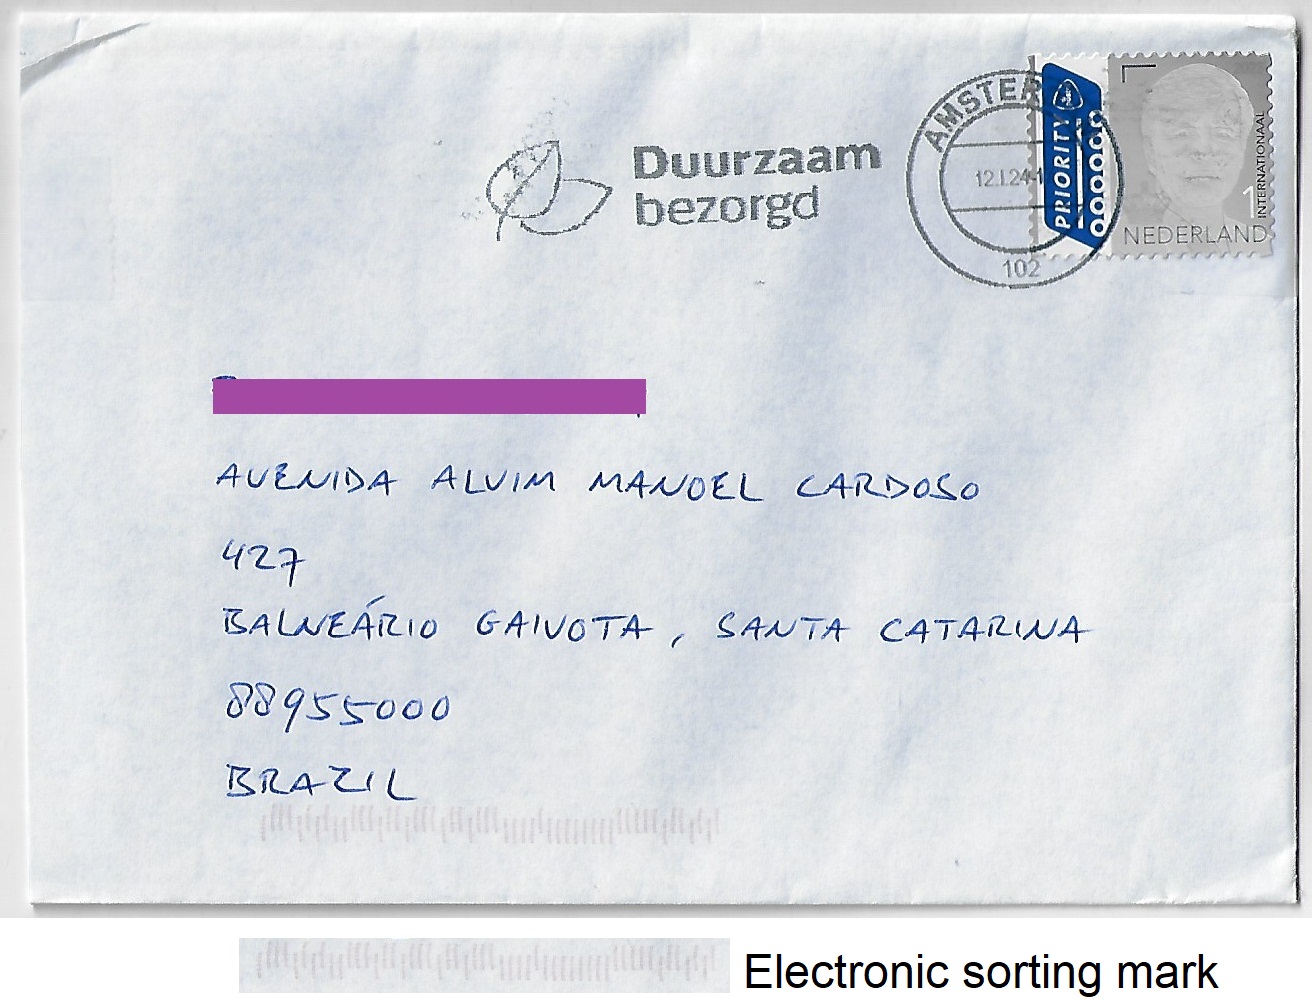 Duurzaam
bezorgd
AMSTER
12.I.24-1
102
PRIORITY
1
INTERNATIONAAL
1
NEDERLAND
AVENIDA ALVIM MANOEL CARDOSO
427
BALNEÁRIO GAIVOTA, SANTA CATARINA
88955000
BRAZIL
Electronic sorting mark